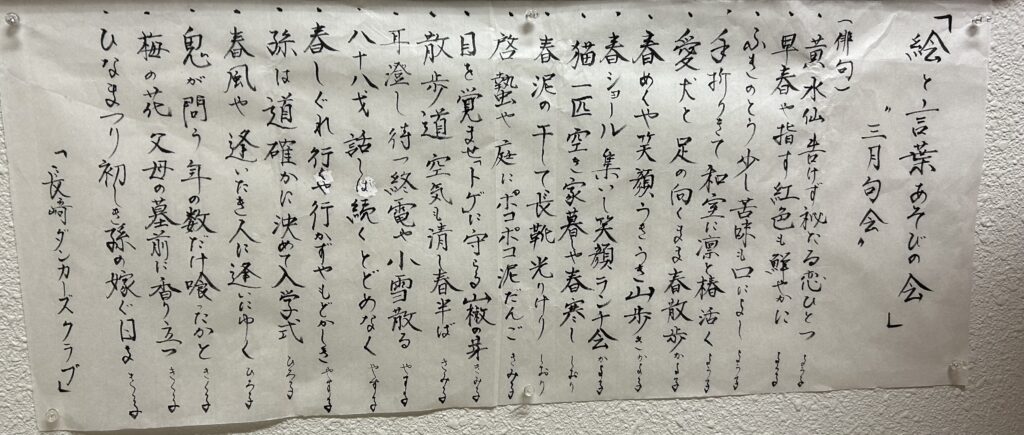 「絵と言葉あそびの会」
"三月句会"
(俳句)
・黄水仙告げず秘たる恋ひとつ
・早春や指す紅色も鮮やかに
・ふきのとう少し苦味も口によし
・手折りきて和室に凛と椿活く
・愛犬と足の向くまま春散歩
・春めくや笑顔うきうき山歩き
・春ショール集いし笑顔ランチ会
・猫一匹空き家暮や春寒し しおり
・春泥の干して長靴光りけり しおり
・啓蟄や庭にポコポコ泥だんご
・目を覚ませ「トゲ」に守らる山椒の芽
・散歩道空気も清し春半ば
・耳澄し待つ終電や小雪散る
・八十八才話しは続くとどめなく
・春しぐれ行くや行かずやもどかしき
・孫は道確かに決めて入学式 ひろる
・春風や逢いたき人に逢いにゆく ひろる
・鬼が問う年の数だけ喰たかと
・梅の花父母の墓前に香り立つ
・ひなまつり初しき孫の嫁ぐ日ま
「長崎ダンカーズクラブ」